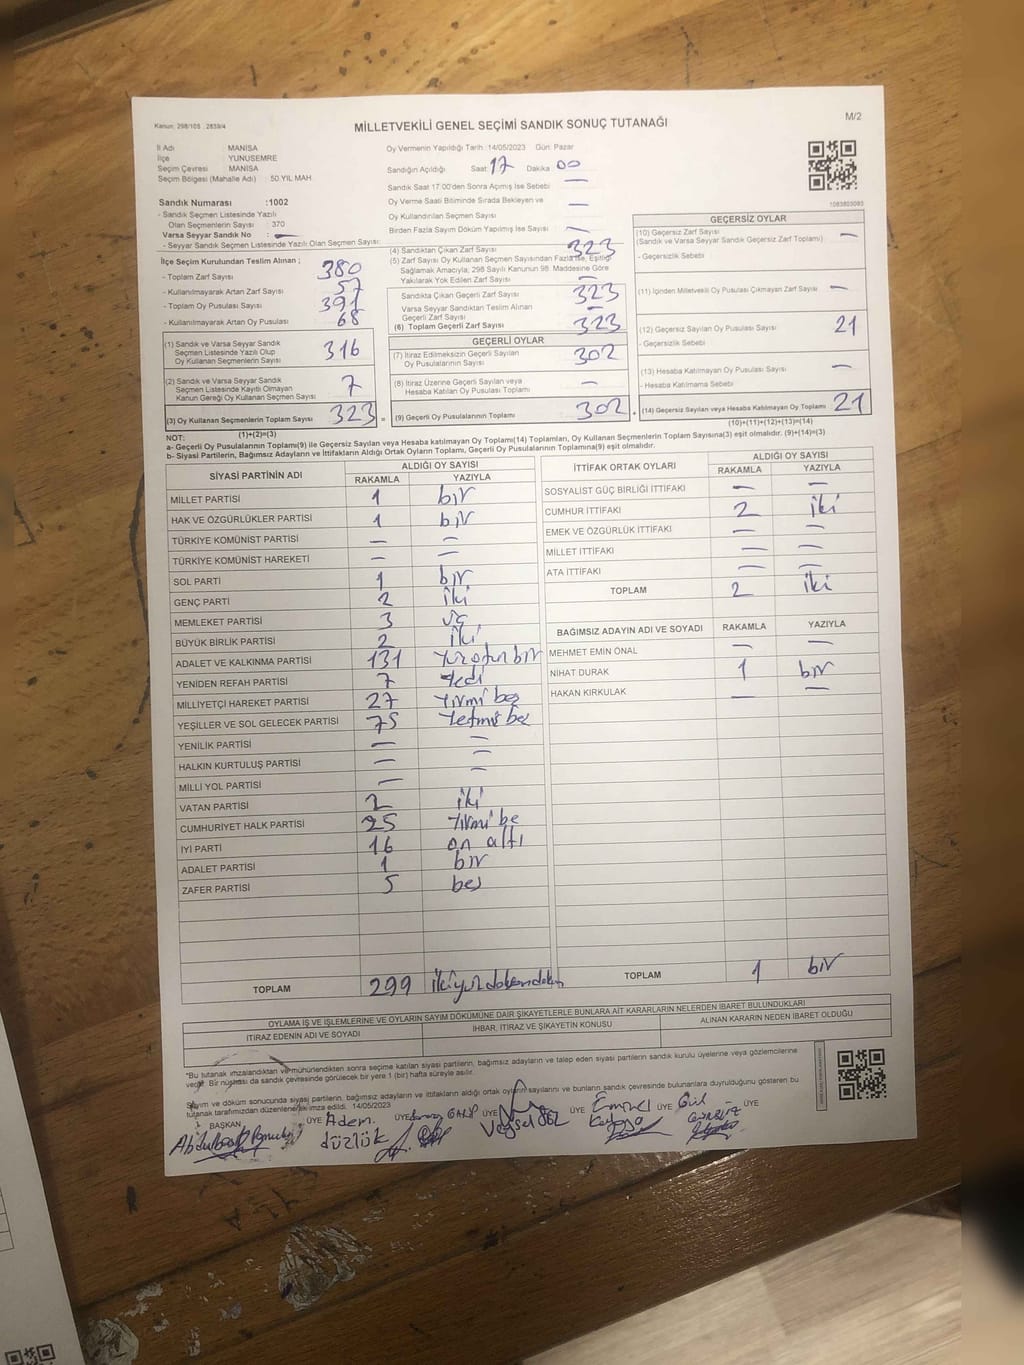 Kanun: 298/105 , 2839/4
MİLLETVEKİLİ GENEL SEÇİMİ SANDIK SONUÇ TUTANAĞI
M/2
İl Adı MANİSA
İlçe YUNUSEMRE
Seçim Çevresi MANİSA
Seçim Bölgesi (Mahalle Adı) 50.YIL MAH.
Sandık Numarası :1002
- Sandık Seçmen Listesinde Yazılı
Olan Seçmenlerin Sayısı : 370
Varsa Seyyar Sandık No : —
- Seyyar Sandık Seçmen Listesinde Yazılı Olan Seçmen Sayısı:
İlçe Seçim Kurulundan Teslim Alınan ;
- Toplam Zarf Sayısı 380
- Kullanılmayarak Artan Zarf Sayısı 57
- Toplam Oy Pusulası Sayısı 391
- Kullanılmayarak Artan Oy Pusulası 68
(1) Sandık ve Varsa Seyyar Sandık
Seçmen Listesinde Yazılı Olup
Oy Kullanan Seçmenlerin Sayısı 316
(2) Sandık ve Varsa Seyyar Sandık
Seçmen Listesinde Kayıtlı Olmayan
Kanun Gereği Oy Kullanan Seçmen Sayısı 7
(3) Oy Kullanan Seçmenlerin Toplam Sayısı 323 =
(1)+(2)=(3)
Oy Vermenin Yapıldığı Tarih :14/05/2023 Gün: Pazar
Sandığın Açıldığı Saat: 17 Dakika 00
Sandık Saat 17.00'den Sonra Açımış İse Sebebi —
Oy Verme Saati Bitiminde Sırada Bekleyen ve
Oy Kullandırılan Seçmen Sayısı —
Birden Fazla Sayım Döküm Yapılmış İse Sayısı —
(4) Sandıktan Çıkan Zarf Sayısı 323
(5) Zarf Sayısı Oy Kullanan Seçmen Sayısından Fazla ise, Eşitliği
Sağlamak Amacıyla; 298 Sayılı Kanunun 98. Maddesine Göre
Yakılarak Yok Edilen Zarf Sayısı —
Sandıkta Çıkan Geçerli Zarf Sayısı 323
Varsa Seyyar Sandıktan Teslim Alınan
Geçerli Zarf Sayısı —
(6) Toplam Geçerli Zarf Sayısı 323
GEÇERLİ OYLAR
(7) İtiraz Edilmeksizin Geçerli Sayılan
Oy Pusulalarının Sayısı 302
(8) İtiraz Üzerine Geçerli Sayılan veya
Hesaba Katılan Oy Pusulası Toplamı —
(9) Geçerli Oy Pusulalarının Toplamı 302 +
1083803093
GEÇERSİZ OYLAR
(10) Geçersiz Zarf Sayısı —
(Sandık ve Varsa Seyyar Sandık Geçersiz Zarf Toplamı)
- Geçersizlik Sebebi
(11) İçinden Milletvekili Oy Pusulası Çıkmayan Zarf Sayısı —
(12) Geçersiz Sayılan Oy Pusulası Sayısı 21
- Geçersizlik Sebebi
(13) Hesaba Katılmayan Oy Pusulası Sayısı —
- Hesaba Katılmama Sebebi
(14) Geçersiz Sayılan veya Hesaba Katılmayan Oy Toplamı 21
(10)+(11)+(12)+(13)=(14)
NOT:
a- Geçerli Oy Pusulalarının Toplamı(9) ile Geçersiz Sayılan veya Hesaba katılmayan Oy Toplamı(14) Toplamları, Oy Kullanan Seçmenlerin Toplam Sayısına(3) eşit olmalıdır. (9)+(14)=(3)
b- Siyasi Partilerin, Bağımsız Adayların ve İttifakların Aldığı Ortak Oyların Toplamı, Geçerli Oy Pusulalarının Toplamına(9) eşit olmalıdır.
SİYASİ PARTİNİN ADI ALDIĞI OY SAYISI
RAKAMLA YAZIYLA
MİLLET PARTİSİ 1 bir
HAK VE ÖZGÜRLÜKLER PARTİSİ 1 bir
TÜRKİYE KOMÜNİST PARTİSİ — —
TÜRKİYE KOMÜNİST HAREKETİ — —
SOL PARTİ 1 bir
GENÇ PARTİ 2 iki
MEMLEKET PARTİSİ 3 üç
BÜYÜK BİRLİK PARTİSİ 2 iki
ADALET VE KALKINMA PARTİSİ 131 Yüz otuz bir
YENİDEN REFAH PARTİSİ 7 Yedi
MİLLİYETÇİ HAREKET PARTİSİ 27 Yirmi beş
YEŞİLLER VE SOL GELECEK PARTİSİ 75 Yetmiş beş
YENİLİK PARTİSİ — —
HALKIN KURTULUŞ PARTİSİ — —
MİLLİ YOL PARTİSİ — —
VATAN PARTİSİ 2 iki
CUMHURİYET HALK PARTİSİ 25 Yirmi be
İYİ PARTİ 16 on altı
ADALET PARTİSİ 1 bir
ZAFER PARTİSİ 5 beş
TOPLAM 299 ikiyüz doksandokuz
İTTİFAK ORTAK OYLARI ALDIĞI OY SAYISI
RAKAMLA YAZIYLA
SOSYALİST GÜÇ BİRLİĞİ İTTİFAKI — —
CUMHUR İTTİFAKI 2 iki
EMEK VE ÖZGÜRLÜK İTTİFAKI — —
MİLLET İTTİFAKI — —
ATA İTTİFAKI — —
TOPLAM 2 iki
BAĞIMSIZ ADAYIN ADI VE SOYADI RAKAMLA YAZIYLA
MEHMET EMİN ÖNAL — —
NİHAT DURAK 1 bir
HAKAN KIRKULAK — —
TOPLAM 1 bir
OYLAMA İŞ VE İŞLEMLERİNE VE OYLARIN SAYIM DÖKÜMÜNE DAİR ŞİKAYETLERLE BUNLARA AİT KARARLARIN NELERDEN İBARET BULUNDUKLARI
İTİRAZ EDENİN ADI VE SOYADI İHBAR, İTİRAZ VE ŞİKAYETİN KONUSU ALINAN KARARIN NEDEN İBARET OLDUĞU
"Bu tutanak imzalandıktan ve mühürlendikten sonra seçime katılan siyasi partilerin, bağımsız adayların ve talep eden siyasi partilerin sandık kurulu üyelerine veya gözlemcilerine
verilir. Bir nüshası da sandık çevresinde görülecek bir yere 1 (bir) hafta süreyle asılır.
Sayım ve döküm sonucunda siyasi partilerin, bağımsız adayların ve ittifakların aldığı ortak oyların sayılarını ve bunların sandık çevresinde bulunanlara duyrulduğunu gösteren bu
tutanak tarafımızdan düzenlenerek imza edildi. 14/05/2023
BAŞKAN ÜYE ÜYE ÜYE ÜYE ÜYE ÜYE
Adem düzlük
Veysel
Emine
Gül